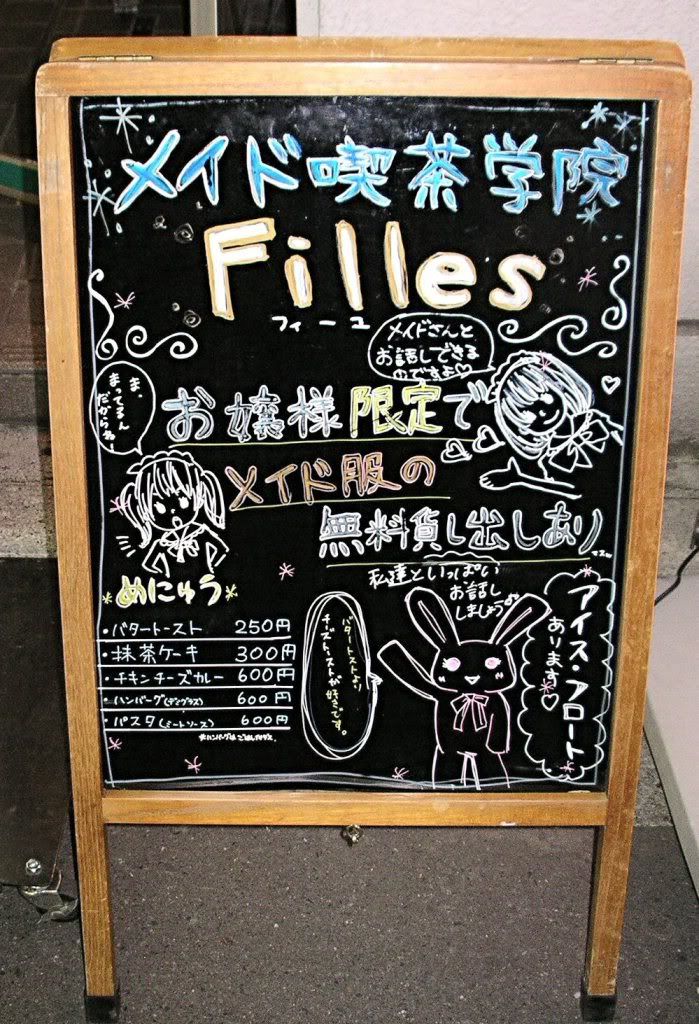 メイド喫茶学院
Filles
フィーユ
メイドさんと
お話しできる
のですよ♡
ま、
まってるん
だからね
お嬢様限定で
メイド服の
無料貸し出しあり
マス
私達といっぱい
お話し
しましょう♪
めにゅう
・バタートースト 250円
・抹茶ケーキ 300円
・チキンチーズカレー 600円
・ハンバーグ(デミグラス) 600円
・パスタ(ミートソース) 600円
バタートーストより
チーズトーストが好きです。
アイス・フロート
あります♡